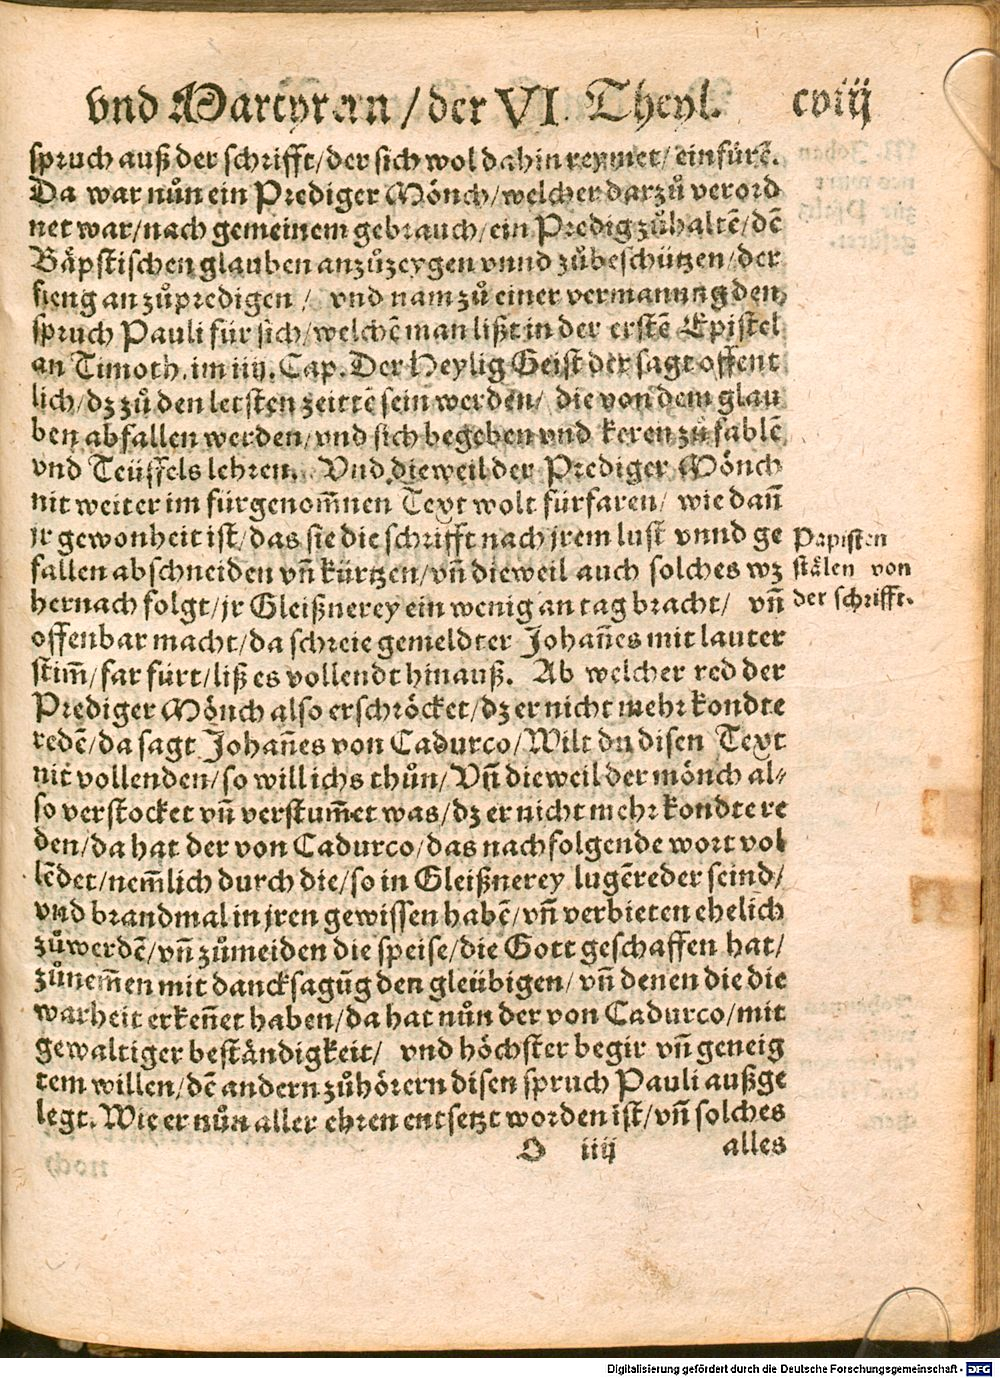 vnd Martyran / der VI. Theyl. cviij
spruch auß der schrifft/ der sich wol dahin reymet/ einfürẽ.
Da war nůn ein Prediger Mönch/ welcher darzů verord
net war/ nach gemeinem gebrauch/ ein Predig zůhaltẽ/ dẽ
Bäpstischen glauben anzůzeygen vnnd zůbeschützen/ der
fieng an zůpredigen / vnd nam zů einer vermanung den
spruch Pauli für sich/ welchẽ man lißt in der erstẽ Epistel
an Timoth. im iiij. Cap. Der Heylig Geist der sagt offent
lich/ dz zů den letsten zeittẽ sein werden/ die von dem glau
ben abfallen werden/ vnd sich begeben vnd keren zů fablẽ
vnd Teüffels lehren. Vnd dieweil der Prediger Mönch
nit weiter im fürgenom̃nen Text wolt fürfaren/ wie dañ
jr gewonheit ist/ das sie die schrifft nach jrem lust vnnd ge
fallen abschneiden vñ kürtzen/ vñ dieweil auch solches wz
hernach folgt/ jr Gleißnerey ein wenig an tag bracht/ vñ
offenbar macht/ da schreie gemeldter Johañes mit lauter
stim̃/ far fürt/ liß es vollendt hinauß. Ab welcher red der
Prediger Mönch also erschröcket/ dz er nicht mehr kondte
redẽ/ da sagt Johañes von Cadurco/ Wilt du disen Text
nit vollenden/ so will ichs thůn/ Vñ dieweil der mönch al⸗
so verstocket vñ verstum̃et was/ dz er nicht mehr kondte re
den/ da hat der von Cadurco/ das nachfolgende wort vol
lẽdet/ nem̃lich durch die/ so in Gleißnerey lugẽreder seind/
vnd brandmal in jren gewissen habẽ/ vñ verbieten ehelich
zůwerdẽ/ vñ zůmeiden die speise/ die Gott geschaffen hat/
zůnem̃en mit dancksagũg den gleübigen/ vñ denen die die
warheit erkeñet haben/ da hat nůn der von Cadurco/ mit
gewaltiger beständigkeit/ vnd höchster begir vñ geneig
tem willen/ dẽ andern zůhörern disen spruch Pauli außge
legt. Wie er nůn aller ehren entsetzt worden ist/ vñ solches
O iiij alles
Papisten
stälen von
der schrifft.
Digitalisierung gefördert durch die Deutsche Forschungsgemeinschaft - DFG